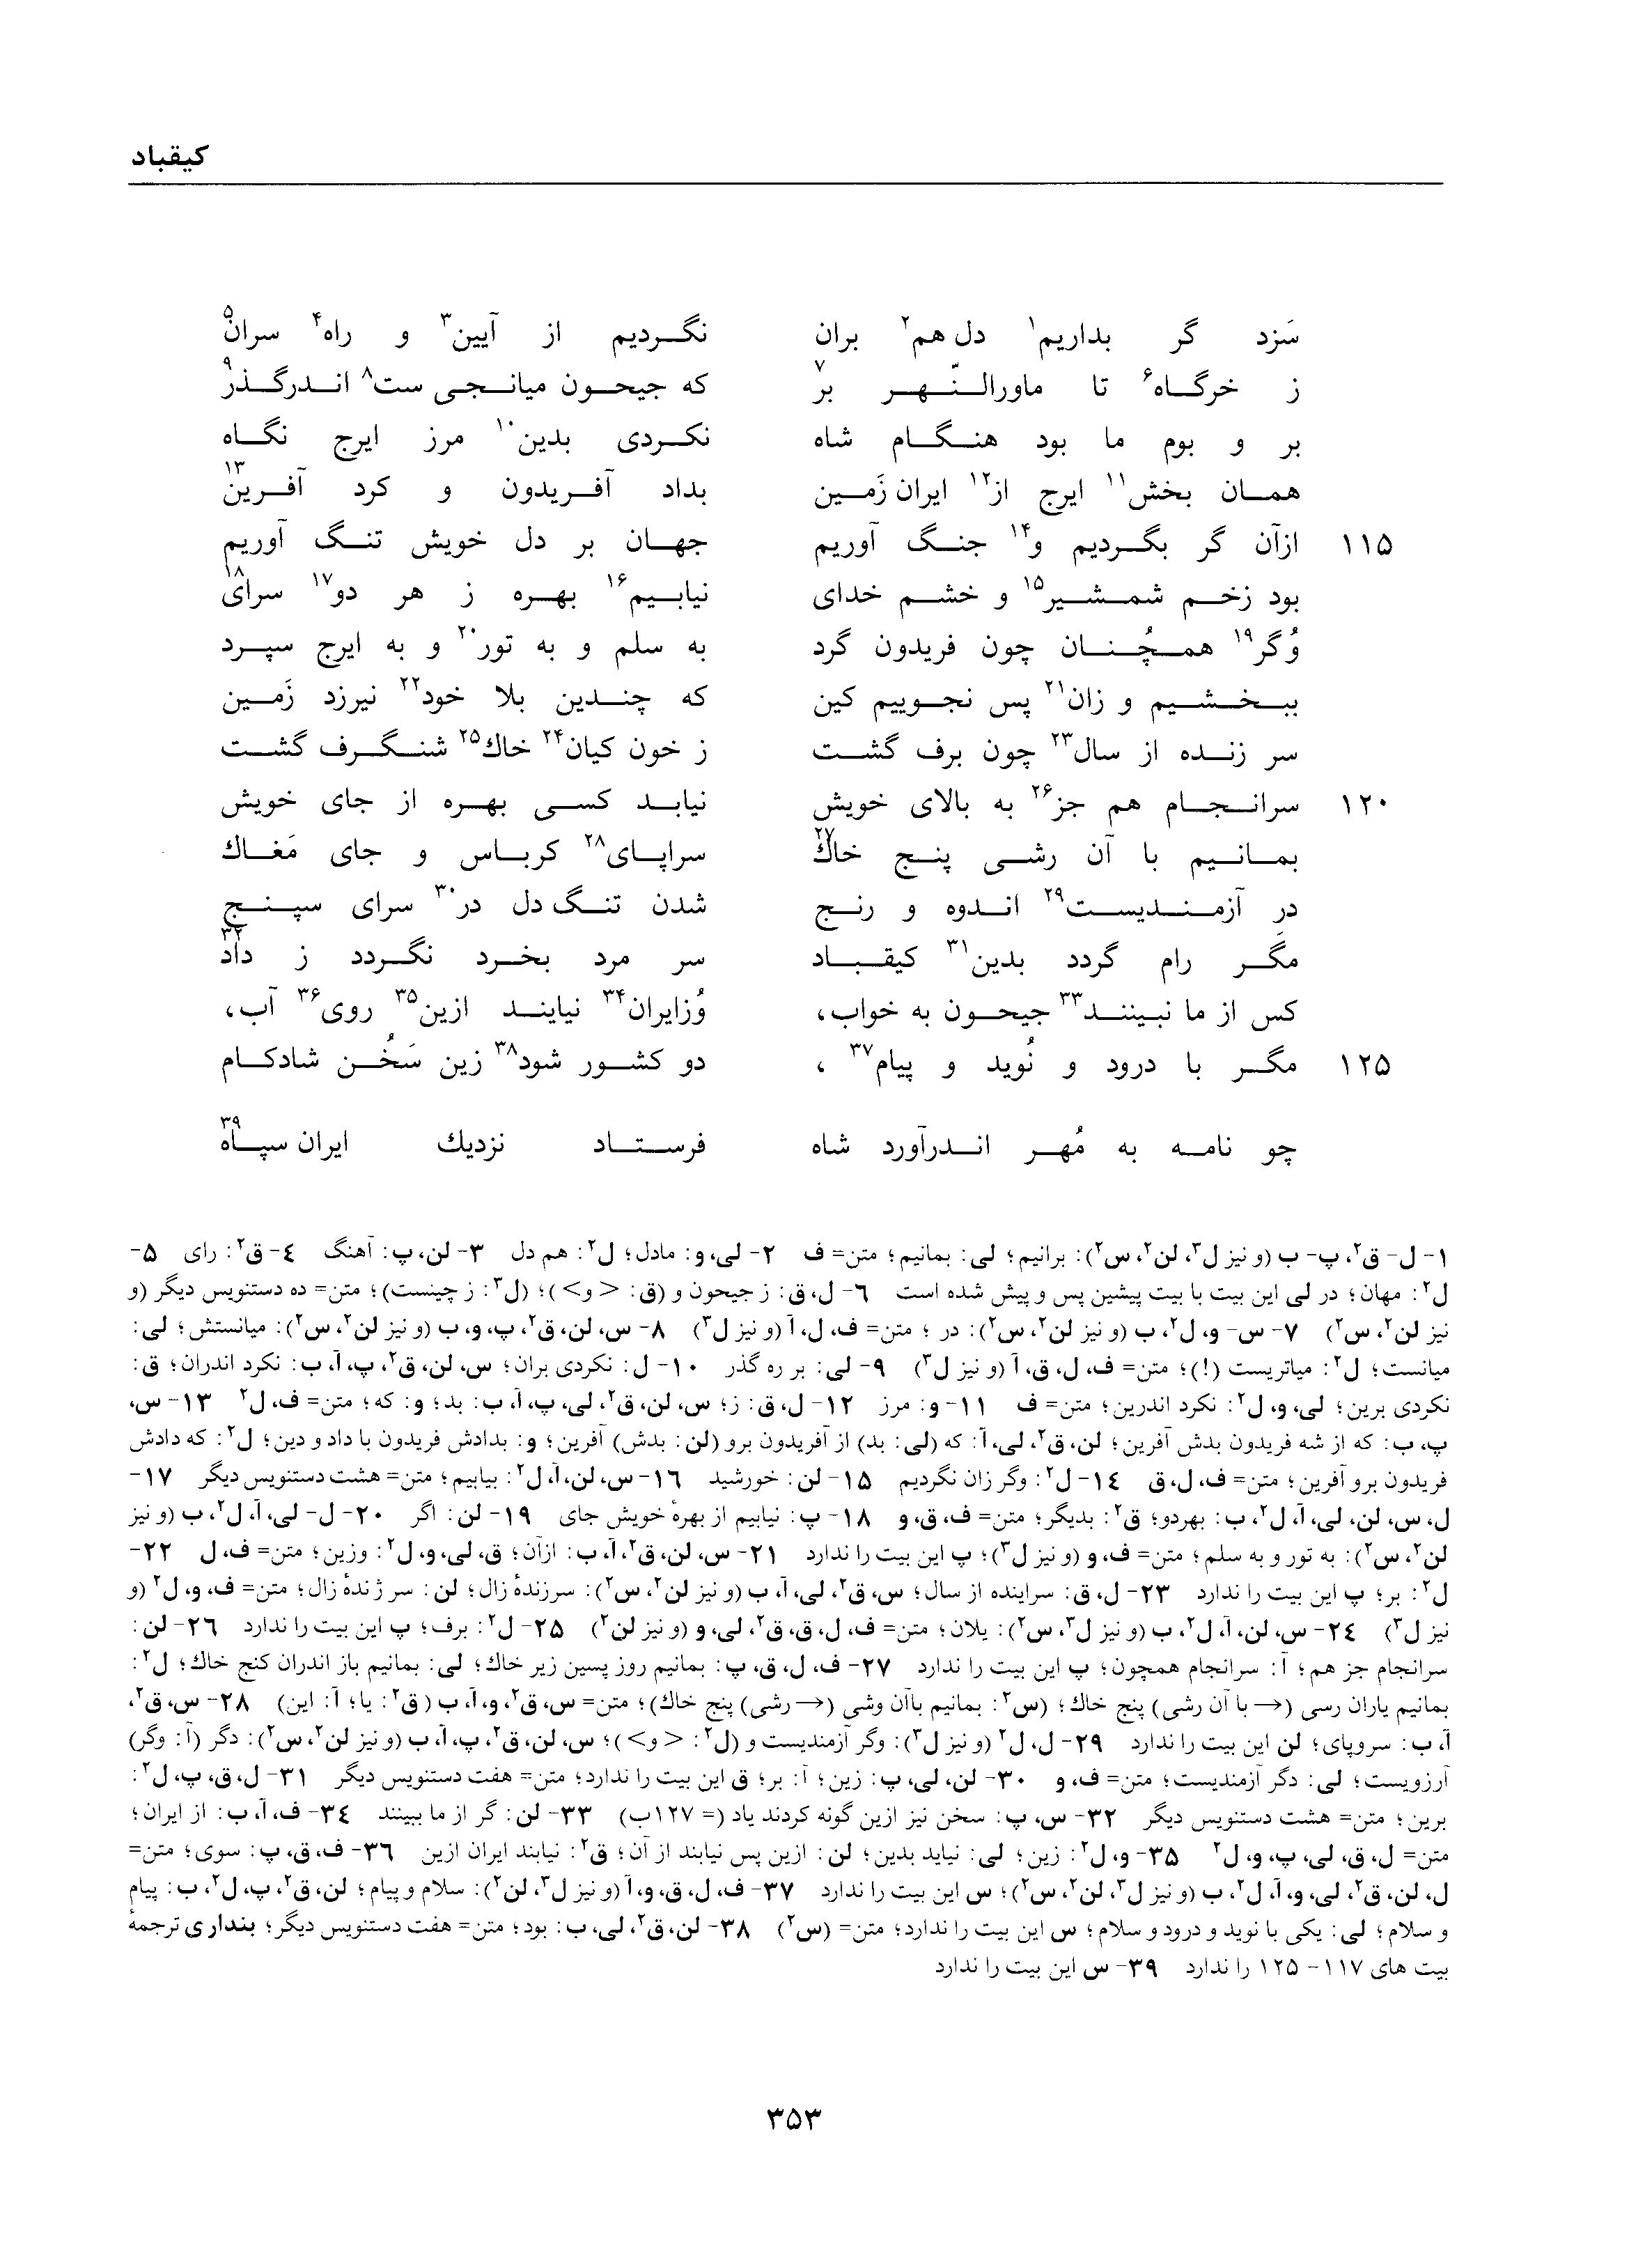 کیقباد
سَزد گر بداریم۱ دل هم۲ بران نگردیم از آیین۳ و راه۴ سران۵
ز خرگاه۶ تا ماورالنّهر بر۷ که جیحون میانجی ست۸ اندرگذر۹
بر و بوم ما بود هنگام شاه نکردی بدین۱۰ مرز ایرج نگاه
همان بخش۱۱ ایرج از۱۲ ایران زَمین بداد آفریدون و کرد آفرین۱۳
۱۱۵ ازآن گر بگردیم و۱۴ جنگ آوریم جهان بر دل خویش تنگ آوریم
بود زخم شمشیر۱۵ و خشم خدای نیابیم۱۶ بهره ز هر دو۱۷ سرای۱۸
وُگر۱۹ همچُنان چون فریدون گرد به سلم و به تور۲۰ و به ایرج سپرد
ببخشیم و زان۲۱ پس نجوییم کین که چندین بلا خود۲۲ نیرزد زَمین
سر زنده از سال۲۳ چون برف گشت ز خون کیان۲۴ خاك۲۵ شنگرف گشت
۱۲۰ سرانجام هم جز۲۶ به بالای خویش نیابد کسی بهره از جای خویش
بمانیم با آن رشی پنج خاك۲۷ سراپای۲۸ کرباس و جای مَغاك
در آزمندیست۲۹ اندوه و رنج شدن تنگ دل در۳۰ سرای سپنج
مگَر رام گردد بدین۳۱ کیقباد سر مرد بخرد نگردد ز داد۳۲
کس از ما نبینند۳۳ جیحون به خواب، وُزایران۳۴ نیایند ازین۳۵ روی۳۶ آب،
۱۲۵ مگر با درود و نُوید و پیام۳۷ ، دو کشور شود۳۸ زین سَخُن شادکام
چو نامه به مُهر اندرآورد شاه فرستاد نزدیك ایران سپاه۳۹
۱- ل- ق۲، پ- ب (و نیز ل۳، لن۲، س۲): برانیم؛ لی: بمانیم؛ متن= ف ۲- لی، و: مادل؛ ل۲: هم دل ۳- لن، پ: آهنگ ٤- ق۲: رای ۵-
ل۲: مهان؛ در لی این بیت با بیت پیشین پس و پیش شده است ٦- ل، ق: ز جیحون و (ق: < و>)؛ (ل۳: ز چینست)؛ متن= ده دستنویس دیگر (و
نیز لن۲، س۲) ۷- س- و، ل۲، ب (و نیز لن۲، س۲): در ؛ متن= ف، ل، آ (و نیز ل۳) ۸- س، لن، ق۲، پ، و، ب (و نیز لن۲، س۲): میانستش؛ لی:
میانست؛ ل۲: میاتریست (!)؛ متن= ف، ل، ق، آ (و نیز ل۳) ۹- لی: بر ره گذر ۱۰- ل: نکردی بران؛ س، لن، ق۲، پ، آ، ب: نکرد اندران؛ ق:
نکردی برین؛ لی، و، ل۲: نکرد اندرین؛ متن= ف ۱۱- و: مرز ۱۲- ل، ق: ز؛ س، لن، ق۲، لی، پ، آ، ب: بد؛ و: که؛ متن= ف، ل۲ ۱۳- س،
پ، ب: که از شه فریدون بدش آفرین؛ لن، ق۲، لی، آ: که (لی: بد) از آفریدون برو (لن: بدش) آفرین؛ و: بدادش فریدون با داد و دین؛ ل۲: که دادش
فریدون برو آفرین؛ متن= ف، ل، ق ۱٤- ل۲: وگر زان نگردیم ۱۵- لن: خورشید ۱٦- س، لن، آ، ل۲: بیابیم؛ متن= هشت دستنویس دیگر ۱۷-
ل، س، لن، لی، آ، ل۲، ب: بهردو؛ ق۲: بدیگر؛ متن= ف، ق، و ۱۸- پ: نیابیم از بهرهٔ خویش جای ۱۹- لن: اگر ۲۰- ل- لی، آ، ل۲، ب (و نیز
لن۲، س۲): به تور و به سلم؛ متن= ف، و (و نیز ل۳)؛ پ این بیت را ندارد ۲۱- س، لن، ق۲، آ، ب: ازآن؛ ق، لی، و، ل۲: وزین؛ متن= ف، ل ۲۲-
ل۲: بر؛ پ این بیت را ندارد ۲۳- ل، ق: سراینده از سال؛ س، ق۲، لی، آ، ب (و نیز لن۲، س۲): سرزندهٔ زال؛ لن: سر ژندهٔ زال؛ متن= ف، و، ل۲ (و
نیز ل۳) ۲٤- س، لن، آ، ل۲، ب (و نیز ل۳، س۲): یلان؛ متن= ف، ل، ق، ق۲، لی، و (و نیز لن۲) ۲۵- ل۲: برف؛ پ این بیت را ندارد ۲٦- لن:
سرانجام جز هم؛ آ: سرانجام همچون؛ پ این بیت را ندارد ۲۷- ف، ل، ق، پ: بمانیم روز پسین زیر خاك؛ لی: بمانیم باز اندران کنج خاك؛ ل۲:
بمانیم یاران رسی (→ با آن رشی) پنج خاك؛ (س۲: بمانیم باآن وشی (→ رشی) پنج خاك)؛ متن= س، ق۲، و، آ، ب (ق۲: یا؛ آ: این) ۲۸- س، ق۲،
آ، ب: سروپای؛ لن این بیت را ندارد ۲۹- ل، ل۲ (و نیز ل۳): وگر آزمندیست و (ل۲: < و>)؛ س، لن، ق۲، پ، آ، ب (و نیز لن۲، س۲): دگر (آ: وگر)
آرزویست؛ لی: دگر آزمندیست؛ متن= ف، و ۳۰- لن، لی، پ: زین؛ آ: بر؛ ق این بیت را ندارد؛ متن= هفت دستنویس دیگر ۳۱- ل، ق، پ، ل۲:
برین؛ متن= هشت دستنویس دیگر ۳۲- س، پ: سخن نیز ازین گونه کردند یاد (= ۱۲۷ب) ۳۳- لن: گر از ما ببینند ۳٤- ف، آ، ب: از ایران؛
متن= ل، ق، لی، پ، و، ل۲ ۳۵- و، ل۲: زین؛ لی: نیاید بدین؛ لن: ازین پس نیابند از آن؛ ق۲: نیابند ایران ازین ۳٦- ف، ق، پ: سوی؛ متن=
ل، لن، ق۲، لی، و، آ، ل۲، ب (و نیز ل۳، لن۲، س۲)؛ س این بیت را ندارد ۳۷- ف، ل، ق، و، آ (و نیز ل۳، لن۲): سلام و پیام؛ لن، ق۲، پ، ل۲، ب: پیام
و سلام؛ لی: یکی با نوید و درود و سلام؛ س این بیت را ندارد؛ متن= (س۲) ۳۸- لن، ق۲، لی، ب: بود؛ متن= هفت دستنویس دیگر؛ بنداری ترجمهٔ
بیت های ۱۱۷- ۱۲۵ را ندارد ۳۹- س این بیت را ندارد
۳۵۳